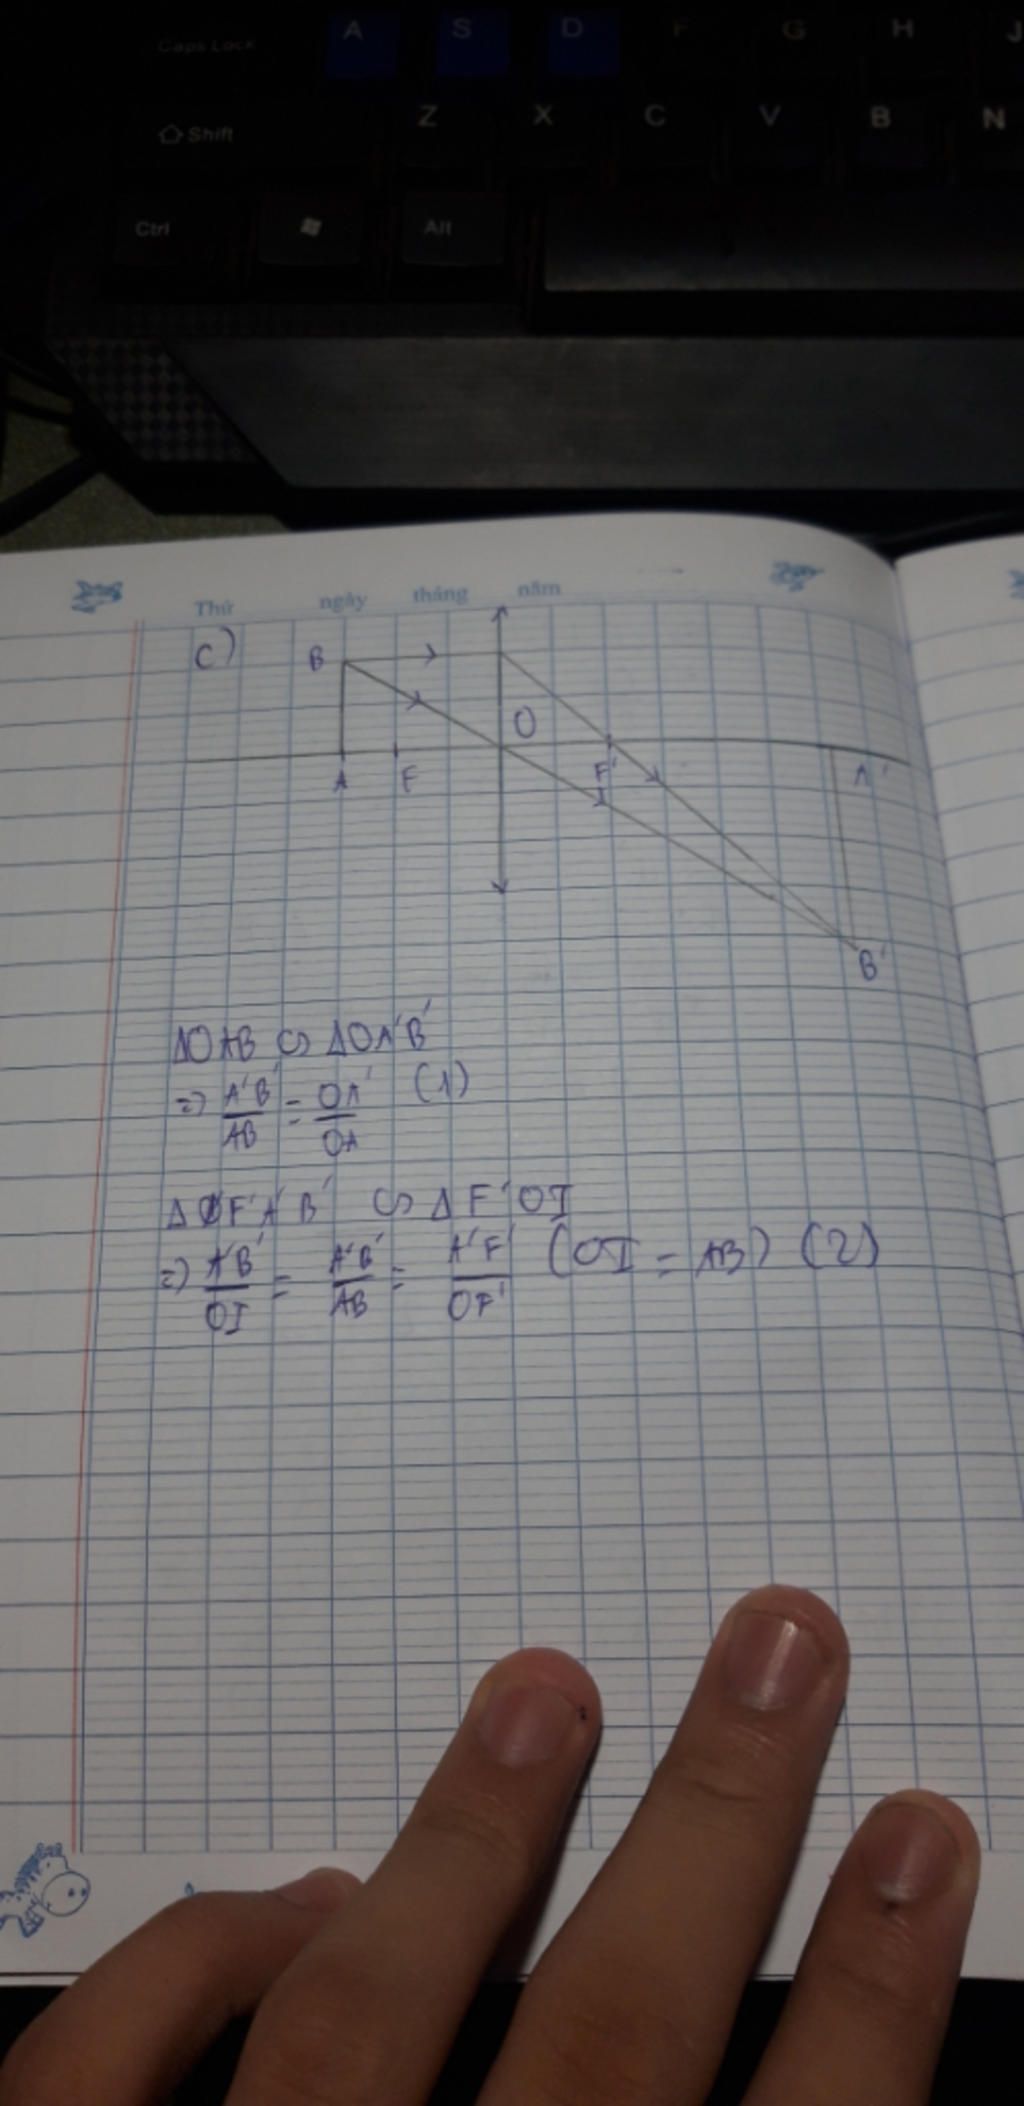 Caps Lock A S D F G H J
Shift Z X C V B N
Ctrl Alt
Thứ ngày tháng năm
C)
B
O
A F F' A'
B'
ΔOAB ∽ ΔOA'B'
=> A'B'/AB = OA'/OA (1)
ΔF'A'B' ∽ ΔF'OI
=> A'B'/OI = A'B'/AB = A'F'/OF' (OI = AB) (2)